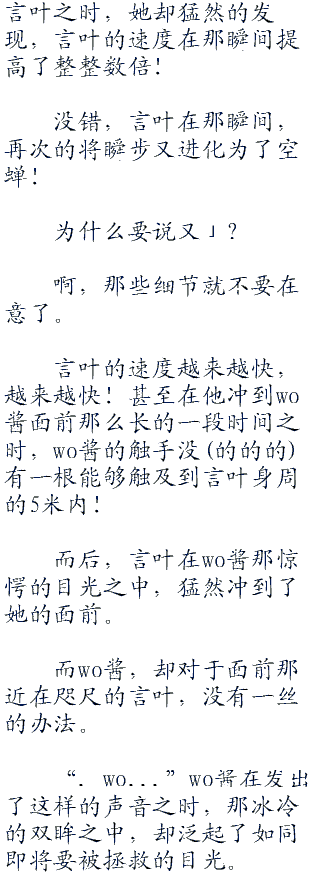 言叶之时，她却猛然的发
现，言叶的速度在那瞬间提
高了整整数倍！
没错，言叶在那瞬间，
再次的将瞬步又进化为了空
蝉！
为什么要说又」？
啊，那些细节就不要在
意了。
言叶的速度越来越快，
越来越快！甚至在他冲到wo
酱面前那么长的一段时间之
时，wo酱的触手没(的的的)
有一根能够触及到言叶身周
的5米内！
而后，言叶在wo酱那惊
愕的目光之中，猛然冲到了
她的面前。
而wo酱，却对于面前那
近在咫尺的言叶，没有一丝
的办法。
“．wo...”wo酱在发出
了这样的声音之时，那冰冷
的双眸之中，却泛起了如同
即将要被拯救的目光。